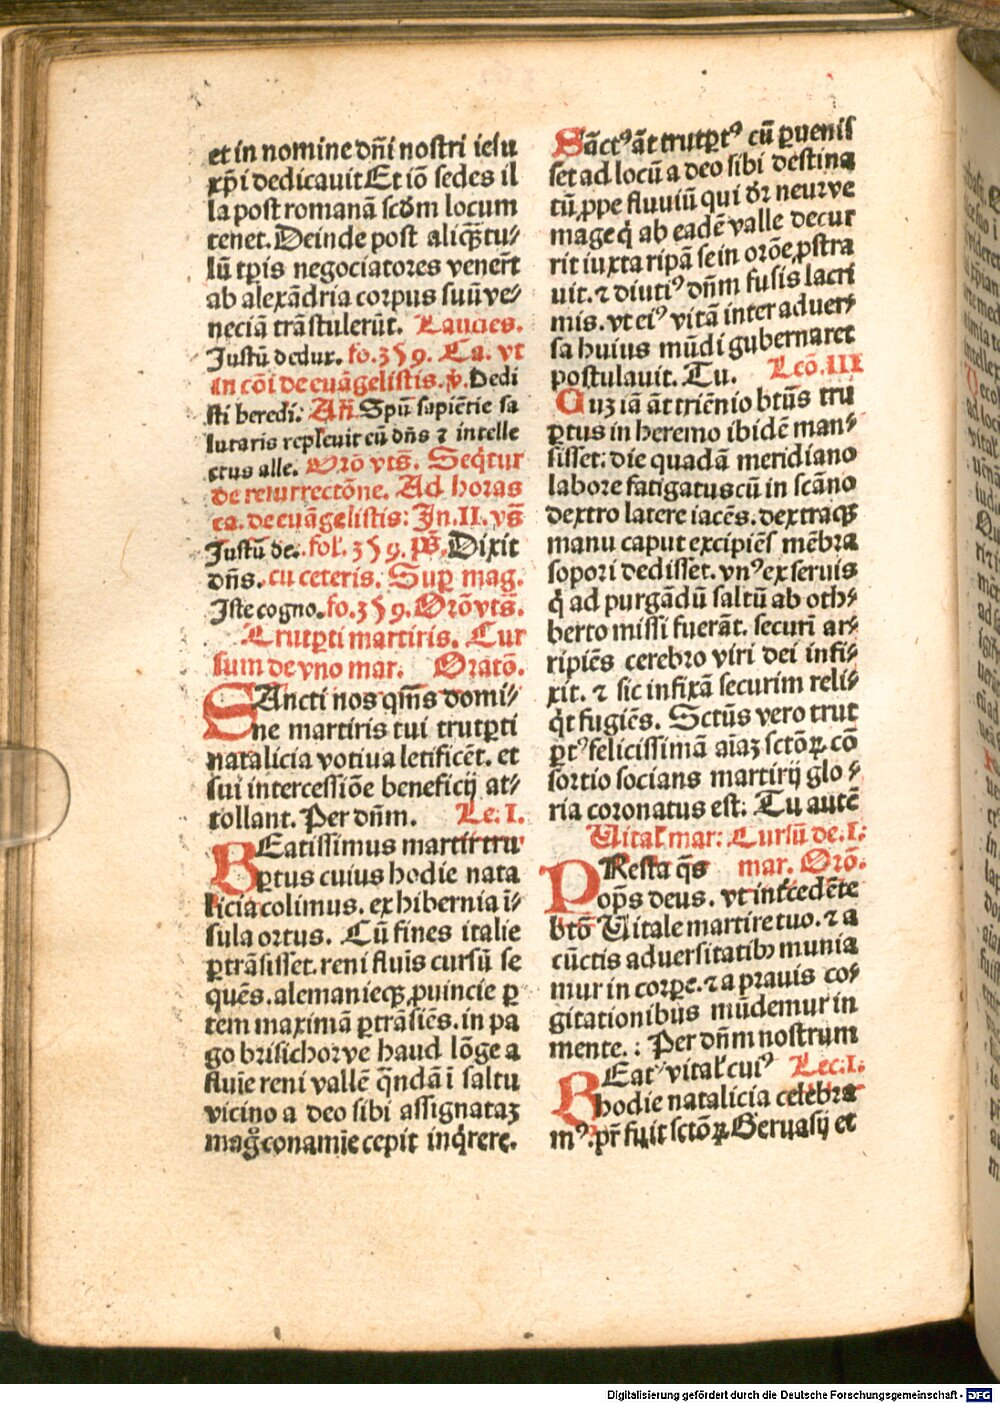 et in nomine dñi nostri iesu
xp̄i dedicauit Et iō sedes il
la post romanā scd̄m locum
tenet. Deinde post aliqꝫ tu⸗
lū tp̄is negociatores venert̄
ab alexādria corpus suū ve⸗
neciā trāstulerūt. Laudes.
Justū dedux. fo. 359. Ca. vt
in cōi de euāgelistis. ꝟ. Dedi
sti heredi: Añ. Spū sapiētie sa
lutaris repleuit eū dñs ⁊ intelle
ctus alle. Orō vts̄. Seq̄tur
de resurrectōne. Ad horas
ca. de euāgelistis: Jn. II. vs̄
Justū de. fol. 359. ps̄. Dixit
dñs. cū ceteris. Suꝑ mag.
Jste cogno. fo. 359. Orō vts̄.
Trutꝑti martiris. Cur
sum de vno mar. Oratō.
SAncti nos qm̄s domi⸗
ne martiris tui trutꝑti
natalicia votiua letificēt. et
sui intercessiōe beneficij at⸗
tollant. Per dñm. Le. I.
BEatissimus martir tru
ꝑtus cuius hodie nata
licia colimus. ex hibernia ī⸗
sula ortus. Cū fines italie
ꝑtrāsisset. reni fluīs cursū se
quēs. alemanieqꝫ ꝓuincie ꝑ
tem maximā ꝑtrāsiēs. in pa
go brisichorve haud lōge a
fluīe reni vallē q̄ndā ī saltu
vicino a deo sibi assignataꝫ
mag conamie cepit inq̄rere.
Sāctꝰ āt trutꝑtꝰ cū ꝑuenis
set ad locū a deo sibi destina
tū, ꝓpe fluuiū qui dr̄ neurve
mageq̄ ab eadē valle decur
rit iuxta ripā se in orōe ꝓstra
uit. ⁊ diutiꝰ dñm fusis lacri
mis. vt eiꝰ vitā inter aduer⸗
sa huius mūdi gubernaret
postulauit. Tu. Lcō. III
Cuꝫ iā āt triēnio btūs tru
ꝑtus in heremo ibidē man⸗
sisset: die quadā meridiano
labore fatigatus cū in scāno
dextro latere iacēs. dextraqꝫ
manu caput excipiēs mēbra
sopori dedisset. vnꝰ ex seruis
q̄ ad purgādū saltū ab oth⸗
berto missi fuerāt. securi ar⸗
ripiēs cerebro viri dei infi⸗
xit. ⁊ sic infixā securim reli⸗
q̄t fugiēs. Sctūs vero trut
ꝑtꝰ felicissimā aīaꝫ sctōꝝ cō
sortio socians martirij glo⸗
ria coronatus est: Tu autē
Uital mar: Cursū de. I:
PResta q̄s mar. Orō.
oṕs deus. vt int̄cedēte
btō Uitale martire tuo. ⁊ a
cūctis aduersitatibꝫ munia
mur in corꝑe. ⁊ a prauis co⸗
gitationibus mūdemur in
mente.: Per dñm nostrum
BEatꝰ vital cuiꝰ Lec. I:
hodie natalicia celebra
mꝰ. pr̄ fuit sctōꝝ Geruasij et
Digitalisierung gefördert durch die Deutsche Forschungsgemeinschaft - DFG